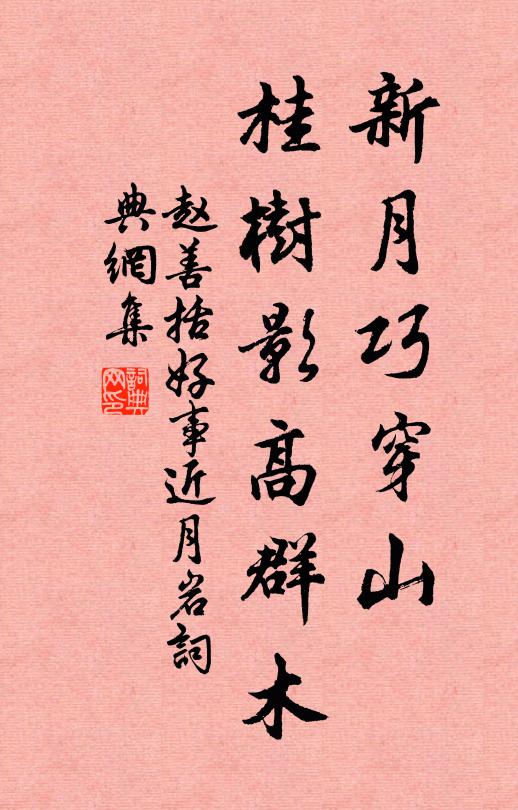 新月巧穿山
桂樹影高群木
赵善括好事近月岩詞
典網集
詞典網印